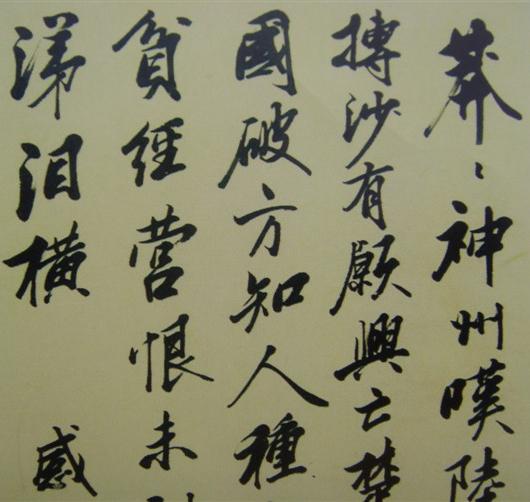 莽〻神州嘆陸
摶沙有願興亡楚
國破方知人種
貧經營恨未
涕泪橫 感